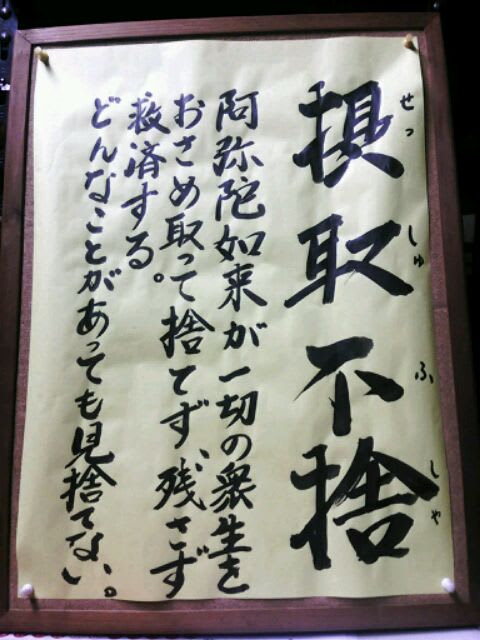 摂取不捨
せっしゅふしゃ
阿弥陀如来が一切の衆生を
おさめ取って捨てず、残さず
救済する。
どんなことがあっても見捨てない。